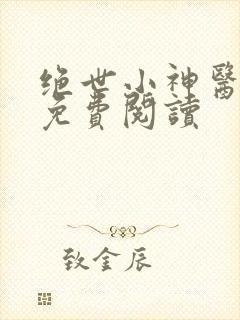 绝世小神醫
免費閱讀
致金辰